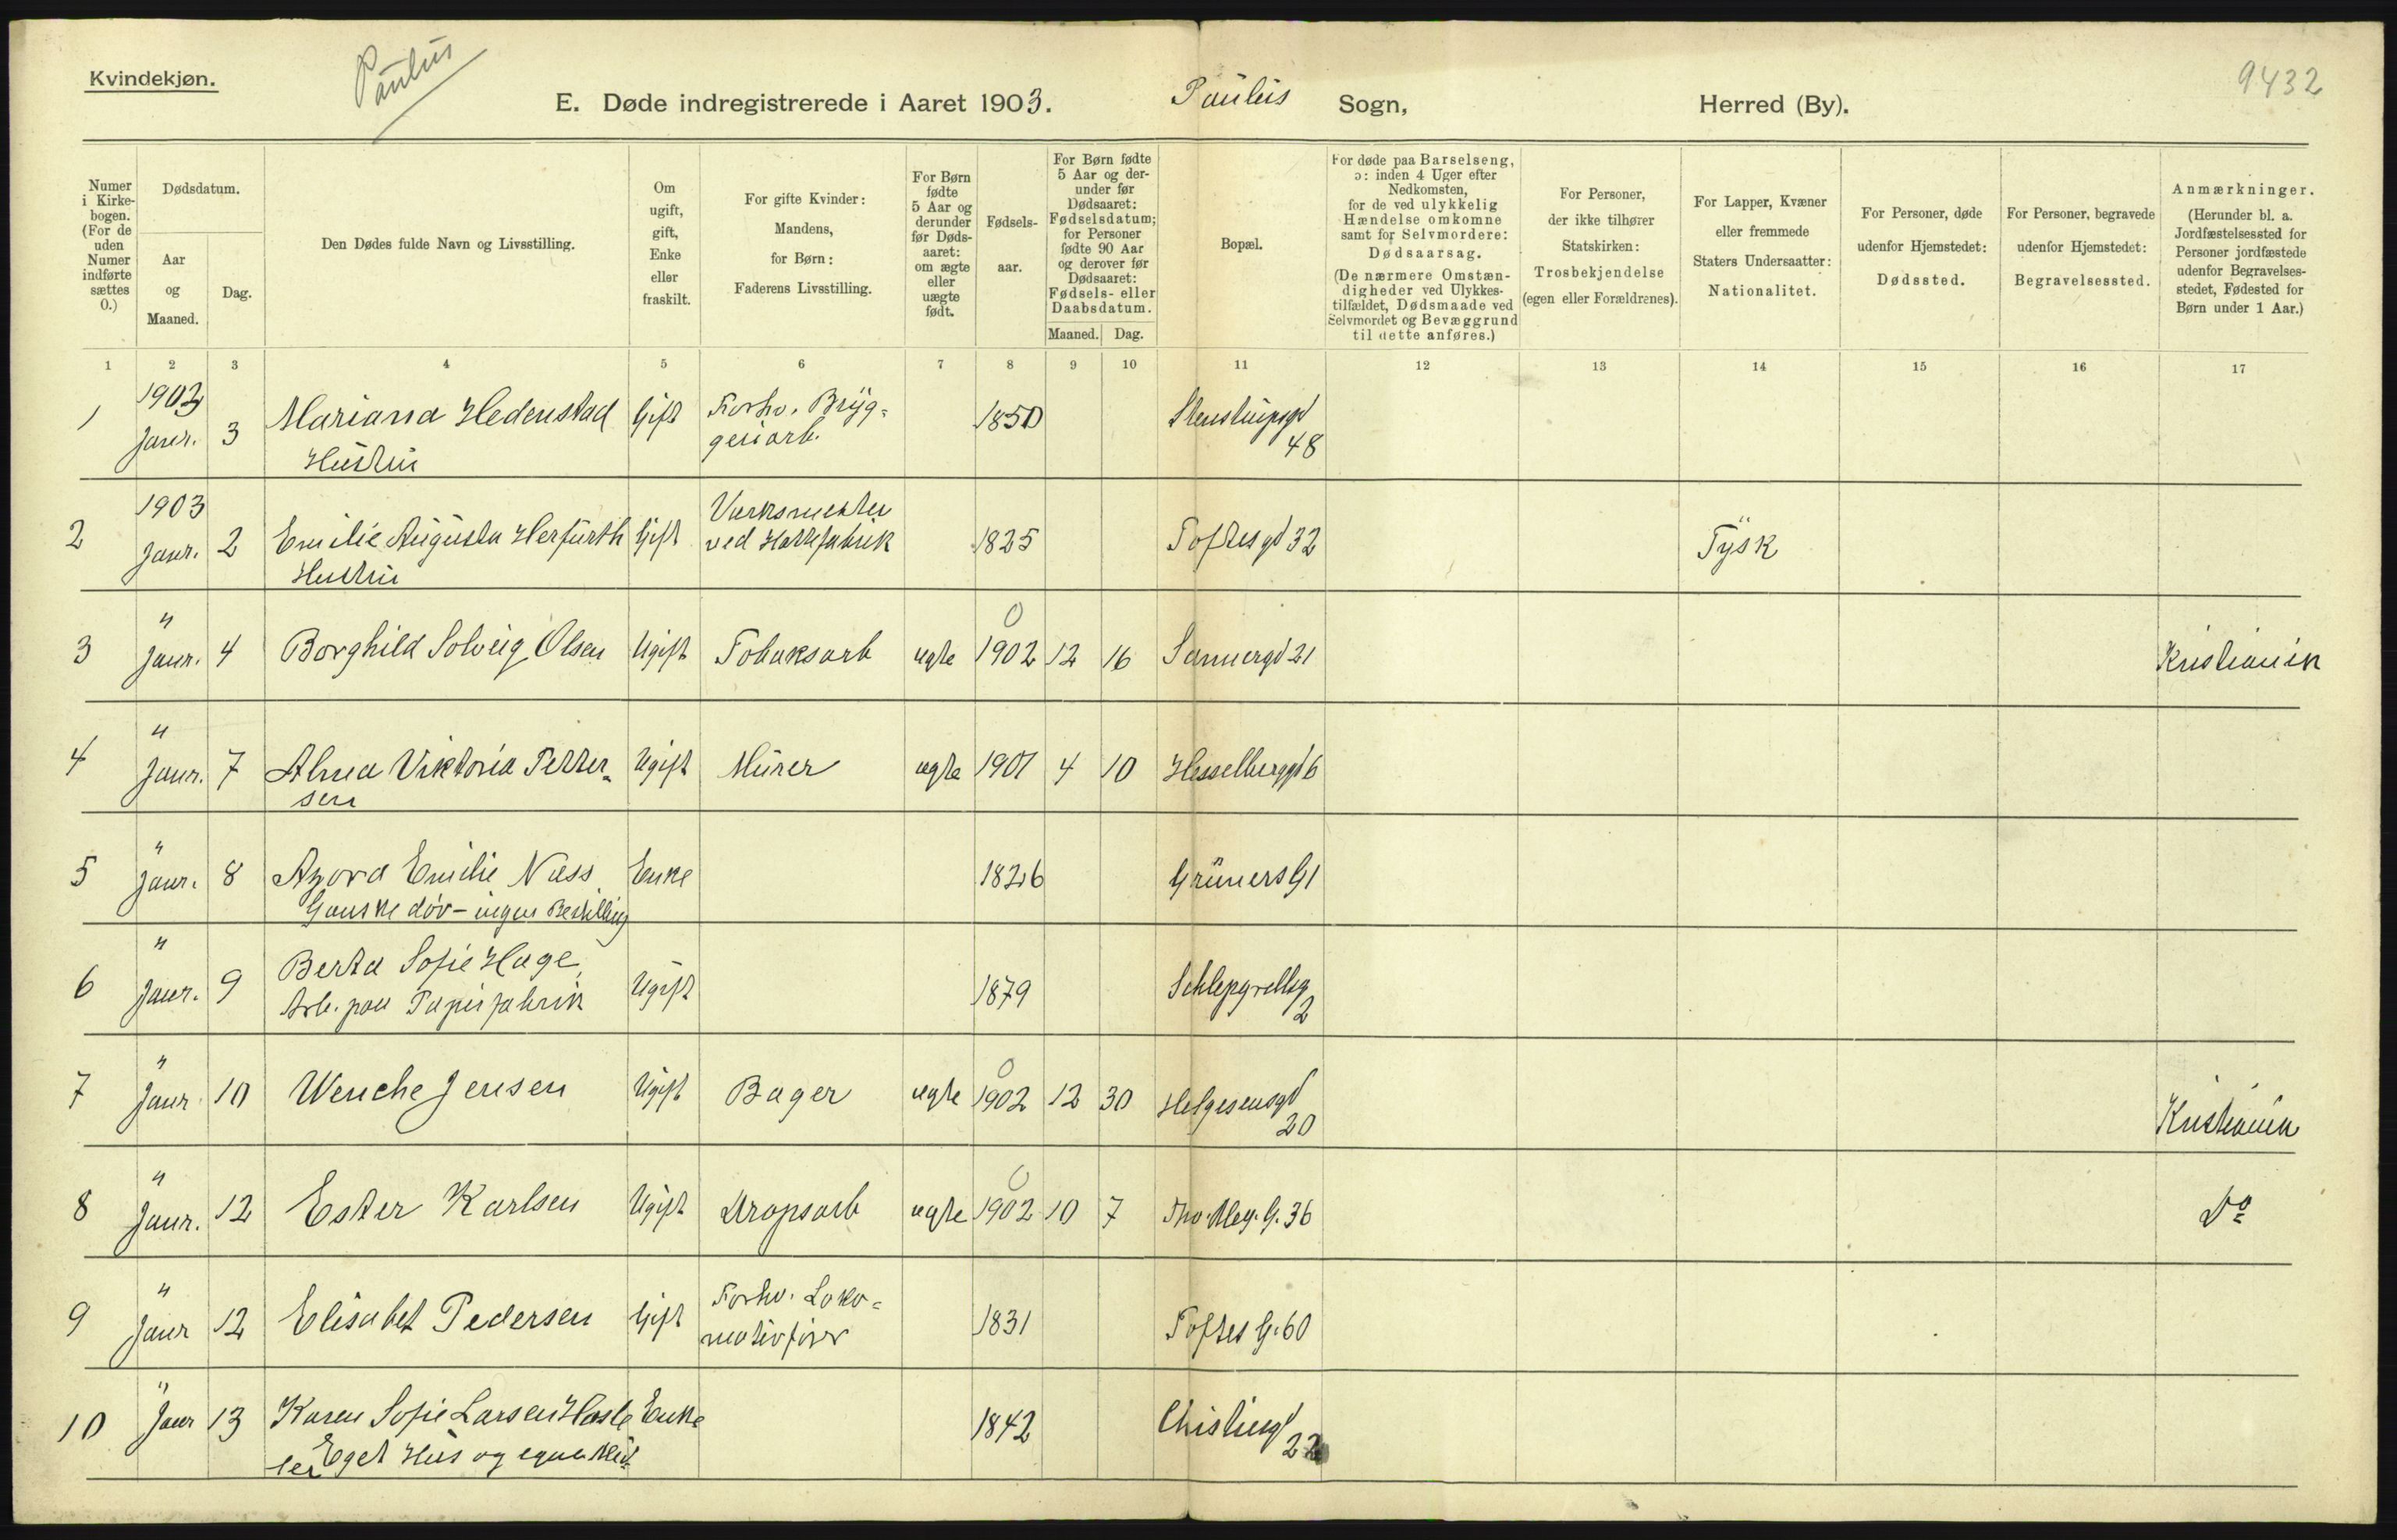 Kvindekjøn.
Paulus
E. Døde indregistrerede i Aaret 1903.
Paulus Sogn,
Herred (By).
9432
Numer i Kirke-bogen. (For de uden Numer indførte sættes 0.)
Dødsdatum.
Aar og Maaned.
Dag.
Den Dødes fulde Navn og Livsstilling.
Om ugift, gift, Enke eller fraskilt.
For gifte Kvinder: Mandens, for Børn: Faderens Livsstilling.
For Børn fødte 5 Aar og derunder før Døds-aaret: om ægte eller uægte født.
Fødsels-aar.
For Børn fødte 5 Aar og der-under før Dødsaaret: Fødselsdatum; for Personer fødte 90 Aar og derover før Dødsaaret: Fødsels- eller Daabsdatum.
Maaned. Dag.
Bopæl.
For døde paa Barselseng, ɔ: inden 4 Uger efter Nedkomsten, for de ved ulykkelig Hændelse omkomne samt for Selvmordere: Dødsaarsag. (De nærmere Omstæn-digheder ved Ulykkes-tilfældet, Dødsmaade ved Selvmordet og Bevæggrund til dette anføres.)
For Personer, der ikke tilhører Statskirken: Trosbekjendelse (egen eller Forældrenes).
For Lapper, Kvæner eller fremmede Staters Undersaatter: Nationalitet.
For Personer, døde udenfor Hjemstedet: Dødssted.
For Personer, begravede udenfor Hjemstedet: Begravelsessted.
Anmærkninger. (Herunder bl. a. Jordfæstelsessted for Personer jordfæstede udenfor Begravelses-stedet, Fødested for Børn under 1 Aar.)
1 2 3 4 5 6 7 8 9 10 11 12 13 14 15 16 17
1 1903 Janr. 3 Mariana Hedenstad Hustru Gift Forhv. Bryg-geriarb. 1850 Stenstrupsgd 48
2 1903 Janr. 2 Emilie Augusta Herfurth Hustru Gift Værksmester ved Hattefabrik 1825 Toftesgd 32 Tysk
3 " Janr. 4 Borghild Solveig Olsen Ugift Tobaksarb ægte 0 1902 12 16 Sannergd 21 Kristiania
4 " Janr. 7 Alma Viktoria Petter-sen Ugift Murer ægte 1901 4 10 Hesselberggd 6
5 " Janr. 8 Emilie Næss Ganske døv - ingen Bestilling Enke 1826 Grüners G 1
6 " Janr. 9 Berta Sofie Hage, Arb. paa Papirfabrik Ugift 1879 Schleppegrellsg 2
7 " Janr 10 Wenche Jensen Ugift Bager ægte 0 1902 12 30 Helgesensgd 20 Kristiania
8 " Janr. 12 Ester Karlsen Ugift Dropsarb ægte 0 1902 10 7 Thv. Mey. G. 36 Do
9 " Janr 12 Elisabet Pedersen Gift Forhv. Loko-motivfører 1831 Toftes G. 60
10 " Janr 13 Karen Sofie Larsen Hasle Eget Hus og egne Mid-ler Enke 1842 22